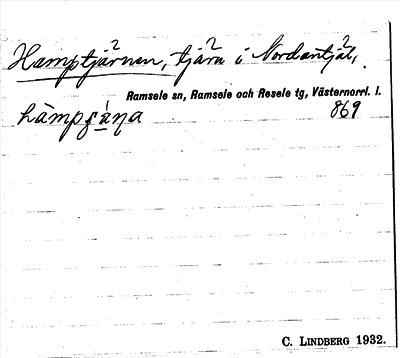 Hamptjärnen, tjärn i Nordantjäl,
Ramsele sn, Ramsele och Resele tg, Västernorrl. l.
869
C. LINDBERG 1932.